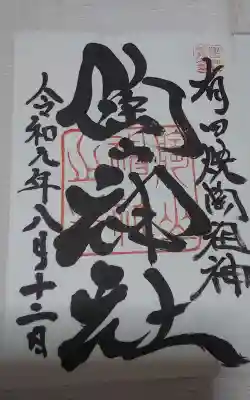 有田焼陶祖神
陶山神社
令和元年八月十二日